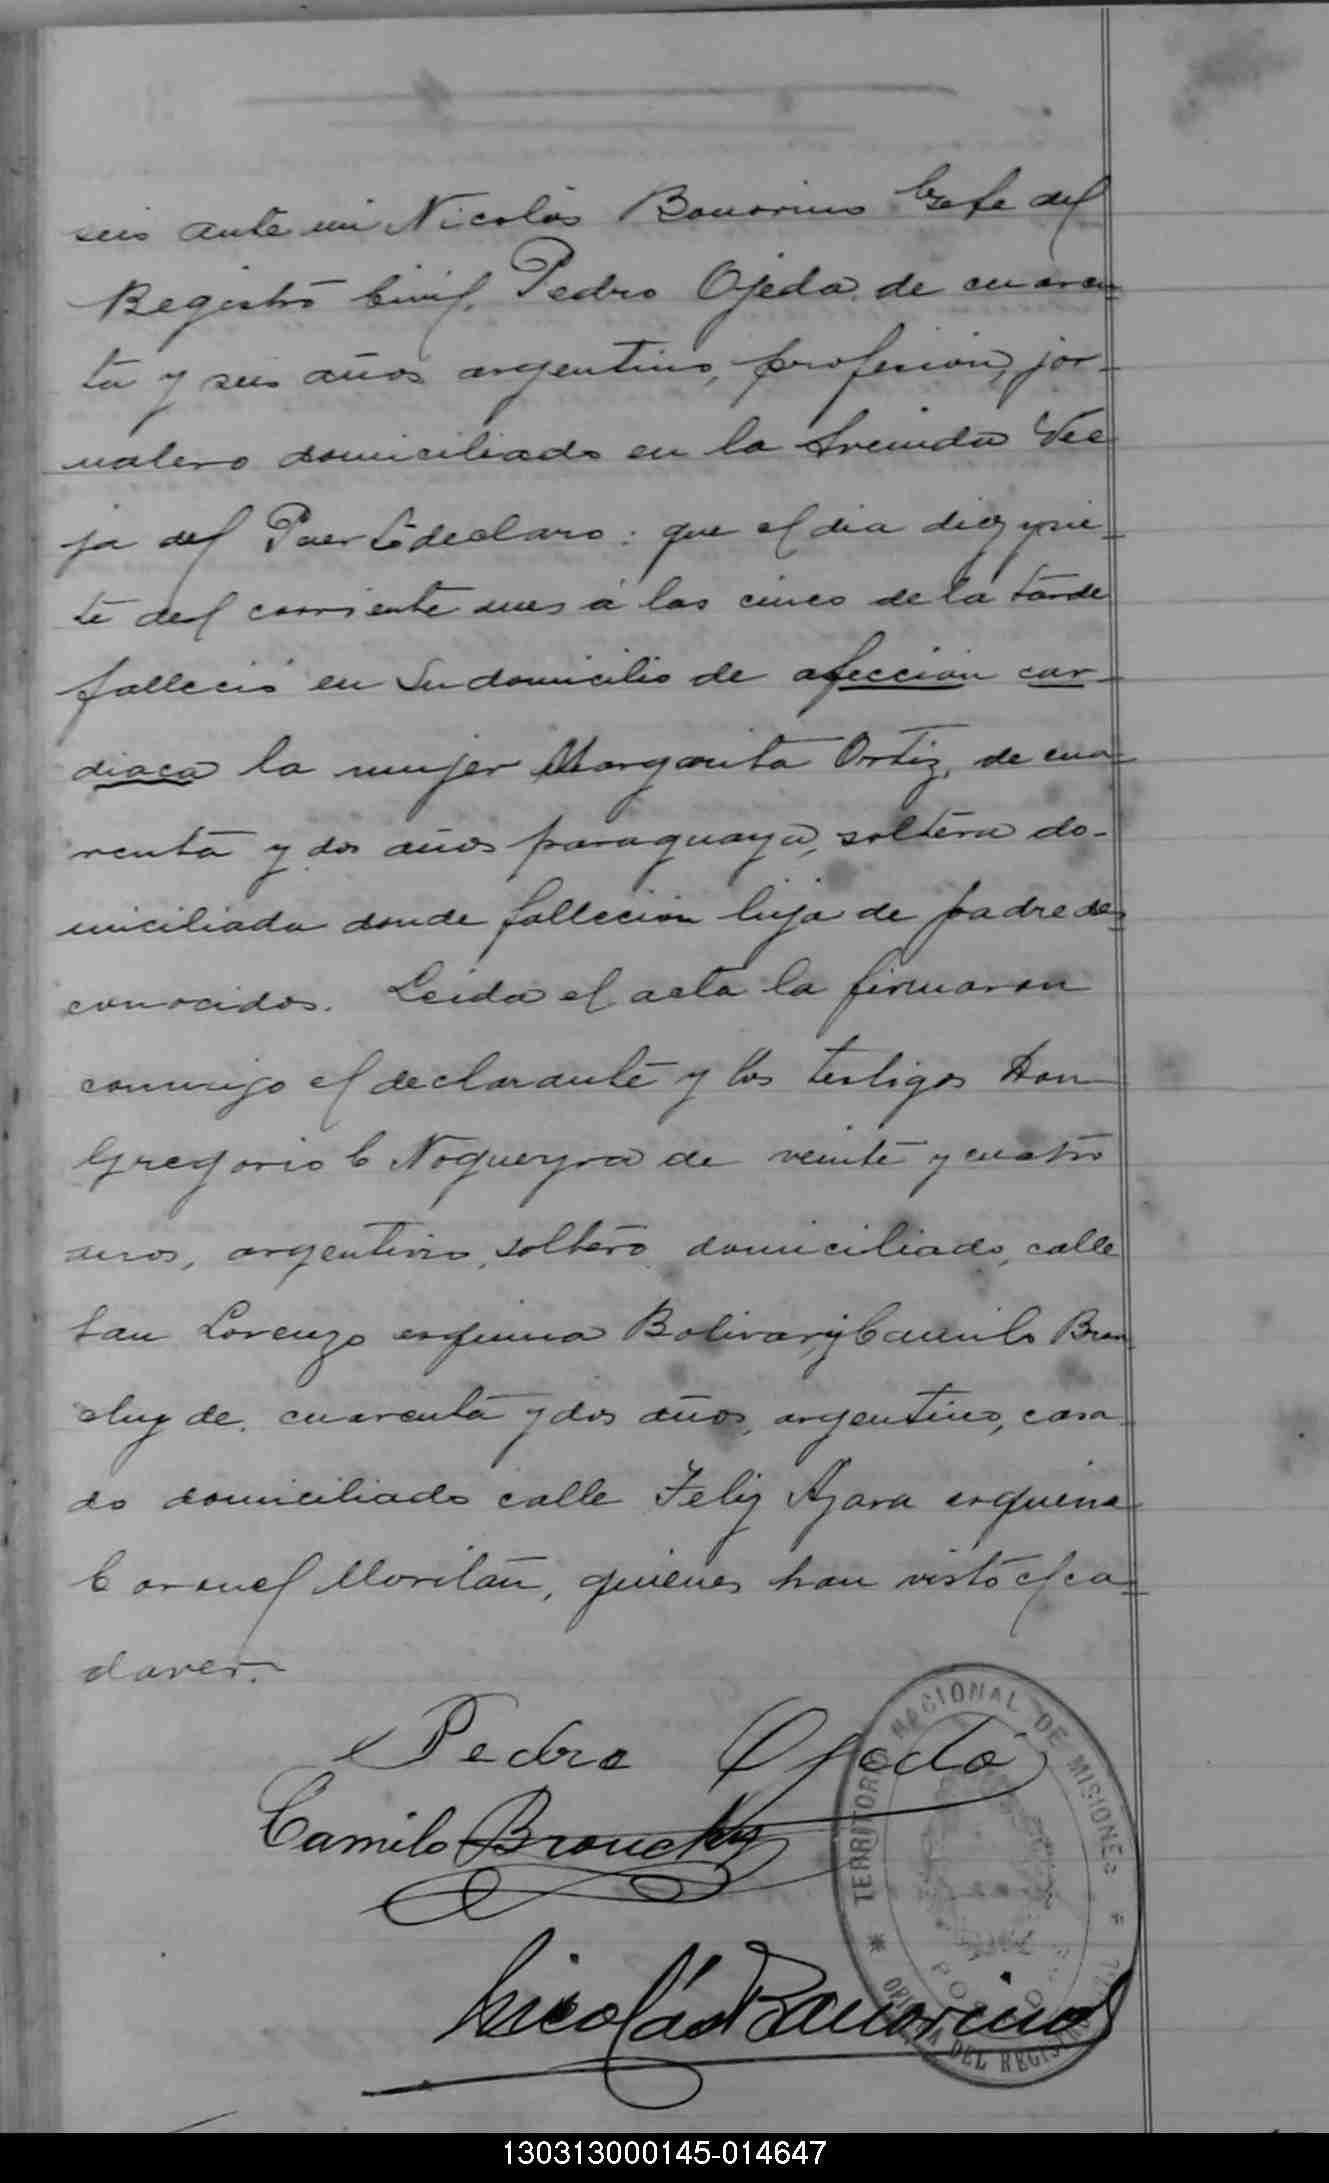 seis ante mi Nicolás Bonorino Gefe del
Registro Civil, Pedro Ojeda de cuaren
ta y seis años argentino, profesion, jor-
nalero domiciliado en la Avenida Vie
ja del Puerto declaro: que el dia diez y sie-
te del corriente mes á las cinco de la tarde
falleció en su domicilio de afeccion car-
diaca la mujer Margarita Ortiz, de cua-
renta y dos años paraguaya, soltera do-
miciliada donde falleció hija de padre des-
conocidos. Leida el acta la firmaron
conmigo el declarante y los testigos Don
Gregorio C Nogueyra de veinte y cuatro
años, argentino, soltero domiciliado, calle
San Lorenzo esquina Bolivar, y Camilo Brou
chuy de cuarenta y dos años, argentino, casa
do domiciliado calle Feliz Azara esquina
Coronel Morilan, quienes han visto el ca-
daver.
Pedro Ojeda
Camilo Brouchuy
Nicolás Bonorino
TERRITORIO NACIONAL DE MISIONES
OFICINA DEL REGISTRO CIVIL
130313000145-014647